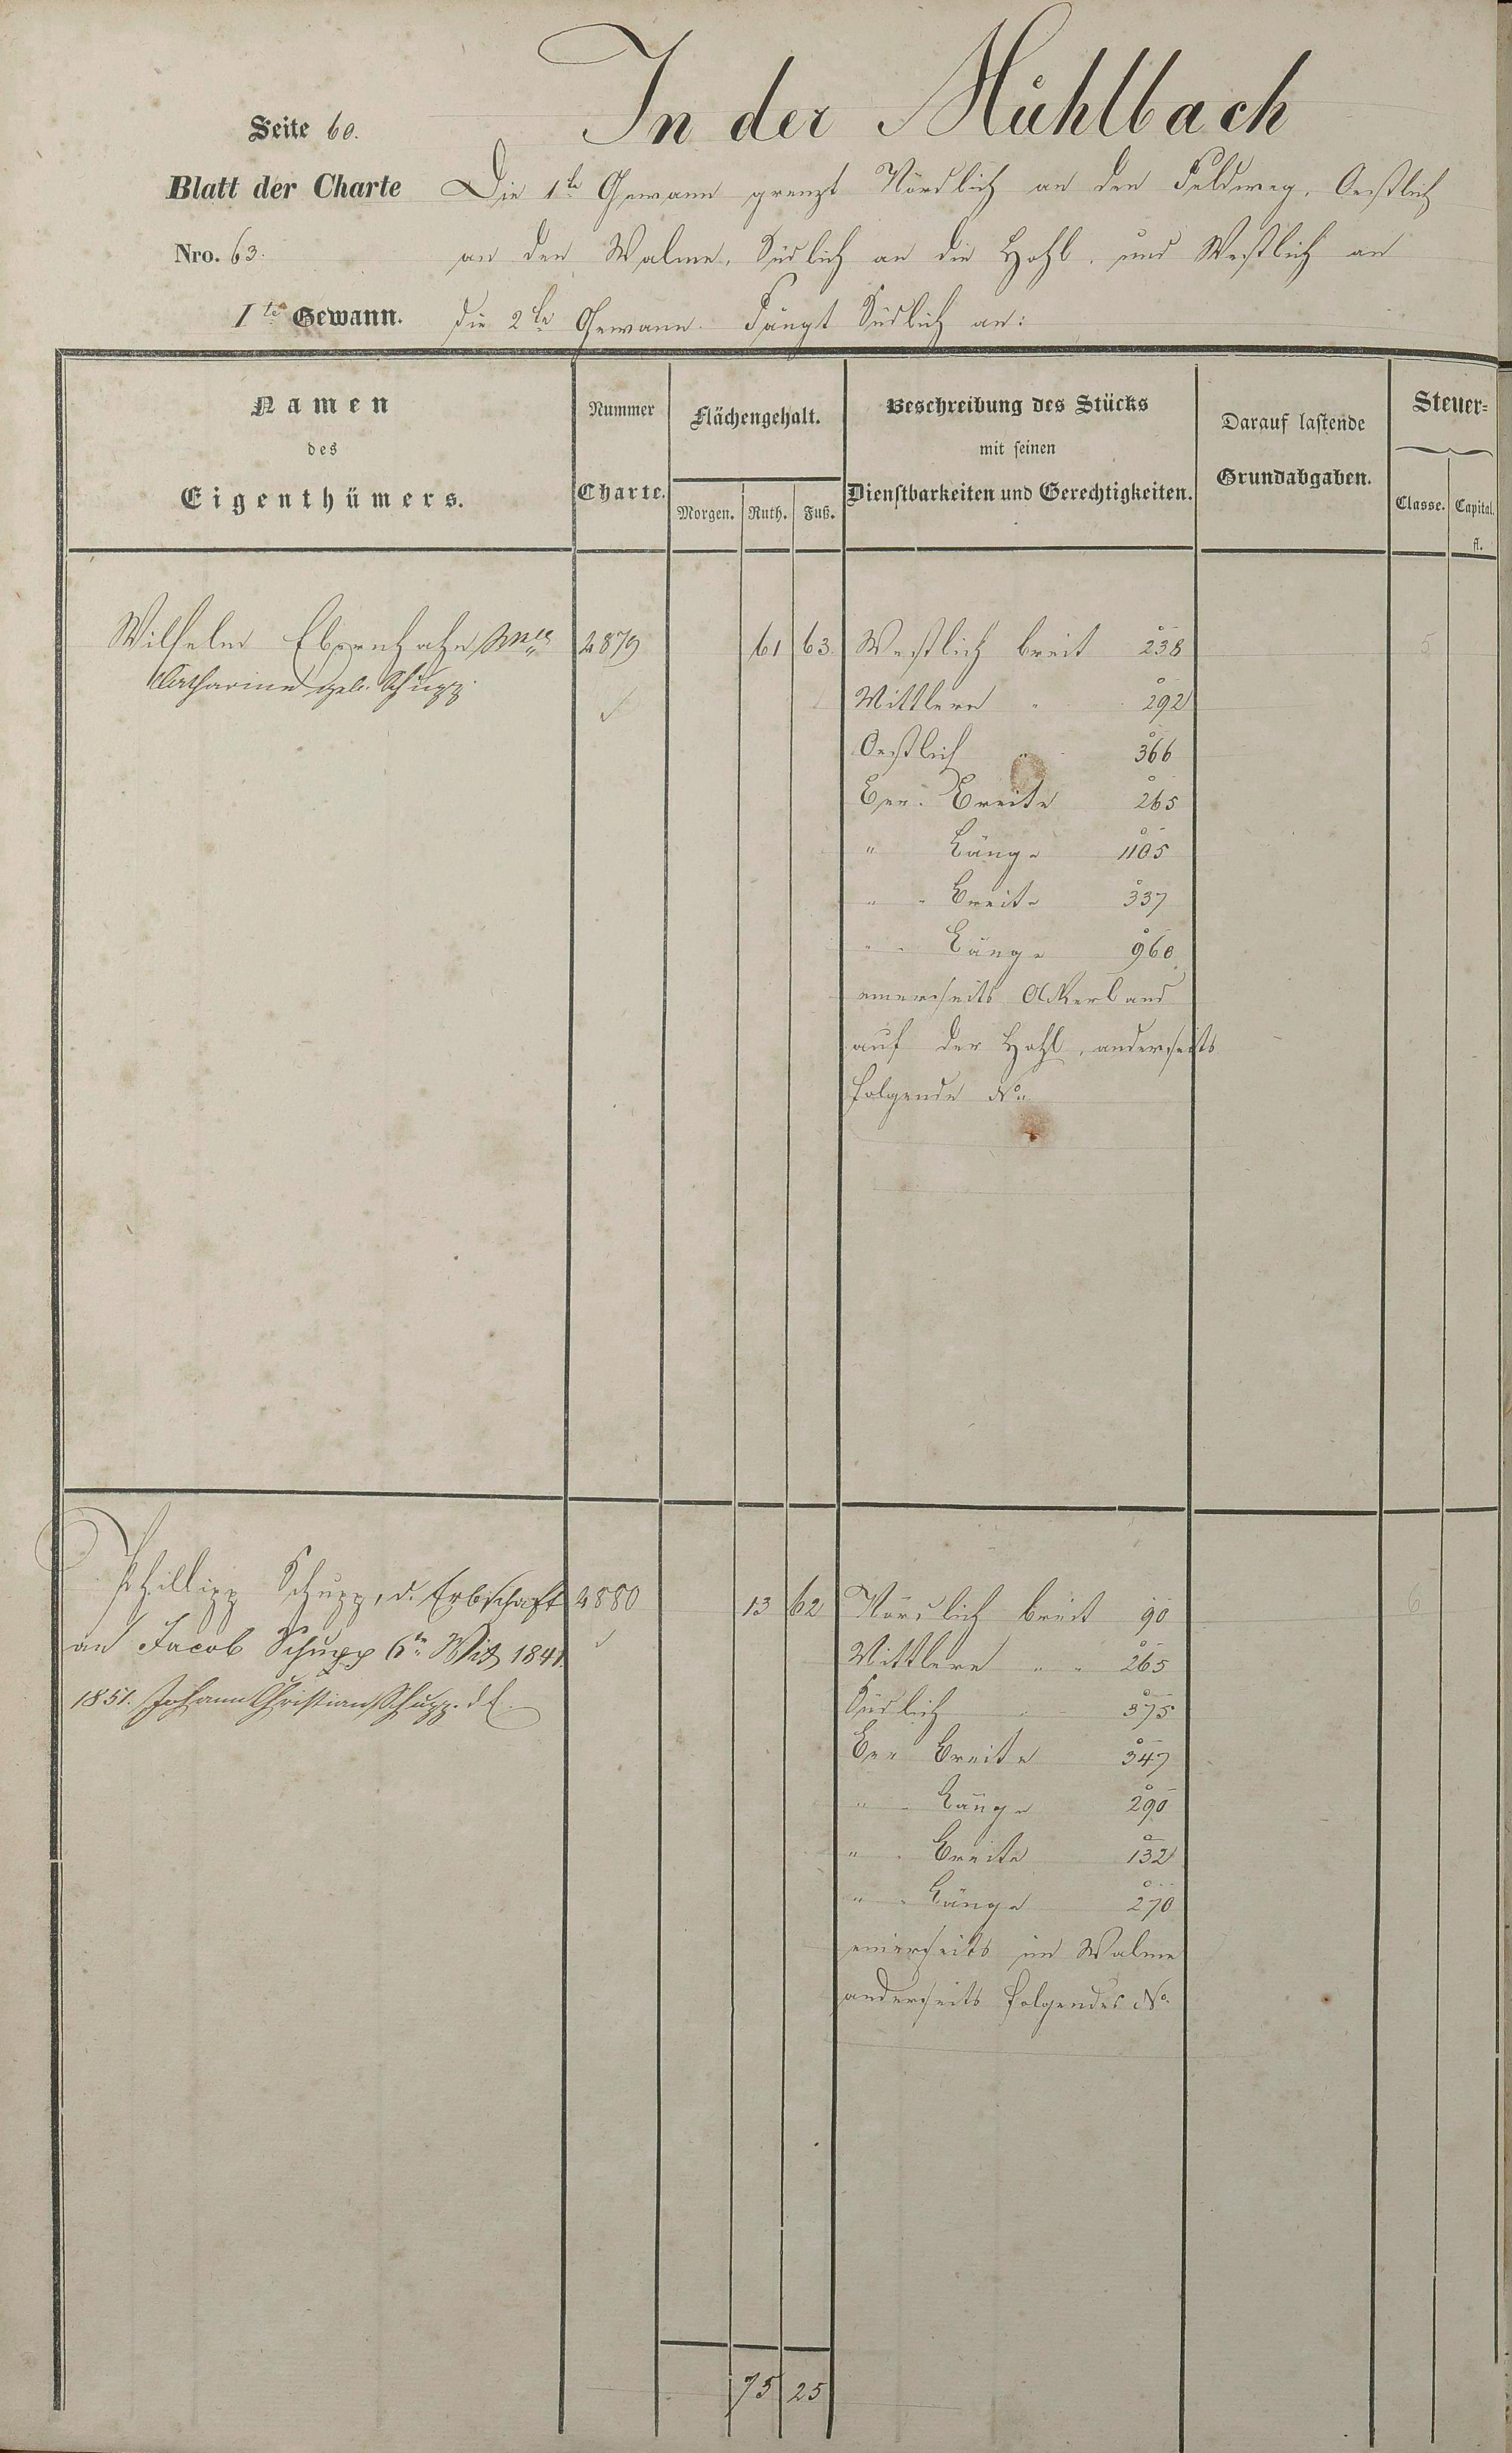 In der Mühlbach
Seite 60.
Blatt der Charte
Nro. 63.
1te Gewann.
Die 1te Gewann grenzt Nördlich an den Feldweg, Oestlich
an den Walme, Südlich an die Hohl, und Westlich an
die 2te Gewann. Fängt Südlich an:
Namen
des
Eigenthümers.
Nummer
Charte.
Flächengehalt.
Morgen. Ruth. Fuß.
Beschreibung des Stücks
mit seinen
Dienstbarkeiten und Gerechtigkeiten.
Darauf lastende
Grundabgaben.
Steuer-
Classe. Capital.
fl.
Wilhelm Ebernhahn 2879 61 63 Westlich breit 238 5
Catharine geb. Schupp
Mittlere " 292
Oestlich " 366
Ber. Breite 265
" Länge 1105
" " Breite 337
" " Länge 960
einerseits Ackerland
auf der Hohl, anderseits
folgende No.
Phillipp Schupp, d. Erbschaft 2880 13 62 Nördlich breit 90 6
an Jacob Schupp 6te 1841.
Mittlere " " 265
1851. Johann Christian Schupp.
Südlich " 375
Ber. Breite 347
" " Länge 290
" " Breite 132
" " Länge 270
einerseits im Walme
anderseits folgendes No.
75 25